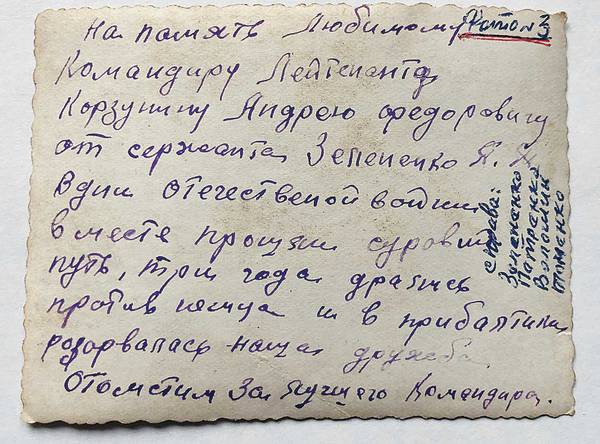 На память Любимому
Фото № 23
Командиру Лейтенанту
Корзунину Андрею Федоровичу
от сержанта Зелененко
Вдни отечественой войны
вместе прошли суровый
путь, три года дрались
против немца и в прибалтики
разорвалась наша дружба.
Отомстим За лучшего Командира.
справа:
Зелененко
Петренко